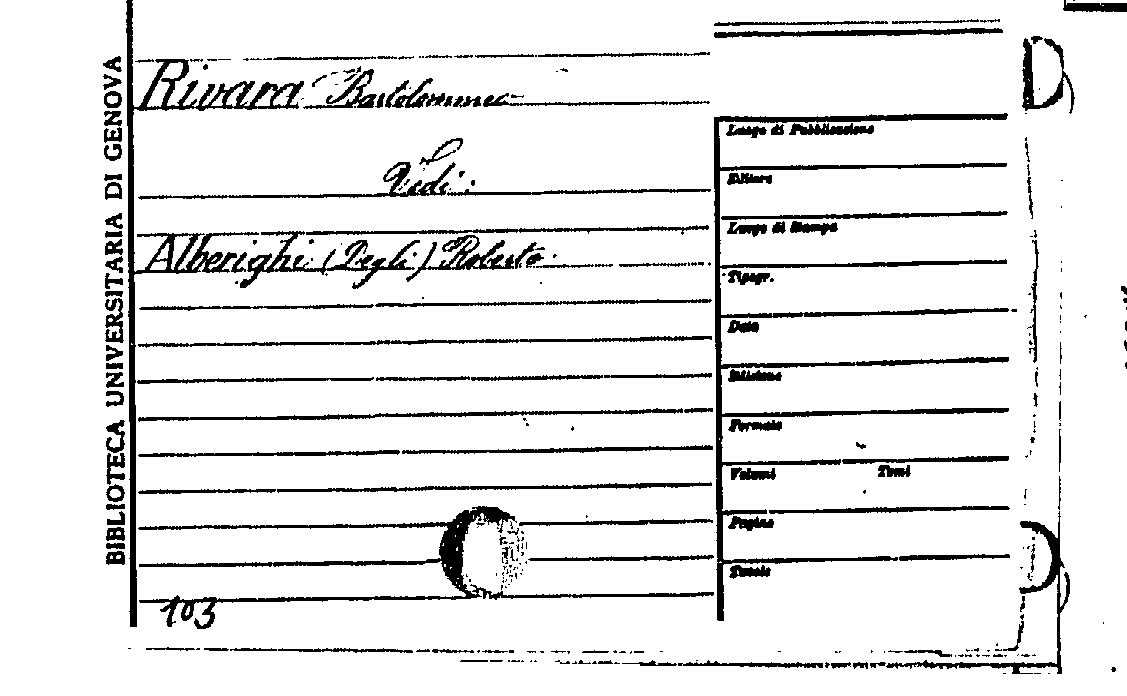 BIBLIOTECA UNIVERSITARIA DI GENOVA
Rivara Bartolommeo
Vedi:
Alberighi (Degli) Roberto
103
Luogo di Pubblicazione
Editore
Luogo di Stampa
Tipogr.
Data
Edizione
Formato
Volumi Tomi
Pagine
Tavole